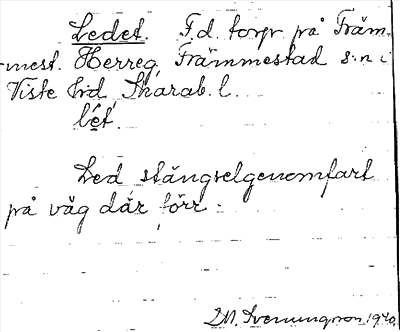 Ledet. F.d. torp på Främ-
mest. Herreg. Främmestad s:n i
Viste hrd, Skarab. l.
lét.
Led stängselgenomfart
på väg där förr.
IM. Svenungsson 1940